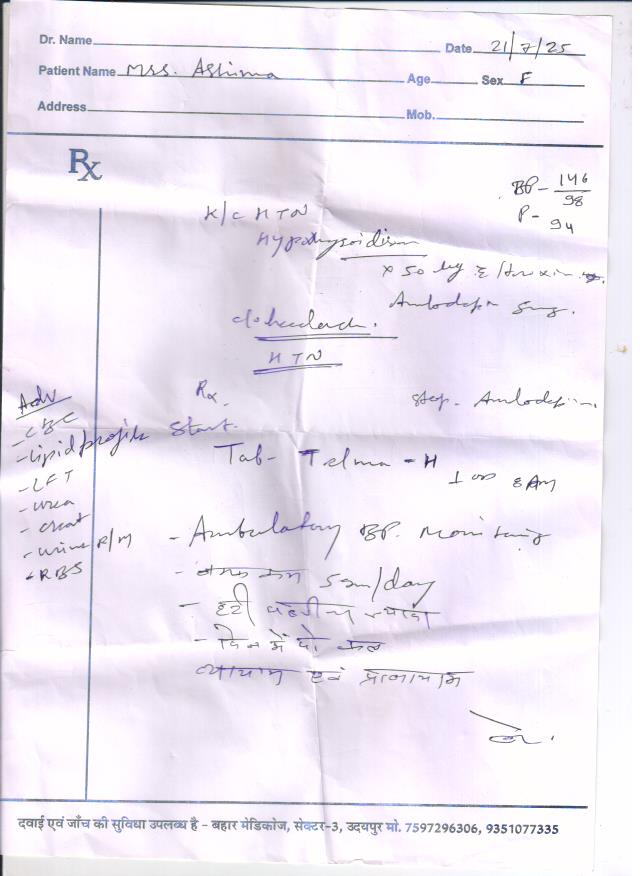 Dr. Name
Date 21/7/25
Patient Name Mrs. Ashima
Age Sex F
Address
Mob.
Rx
BP - 146/98
P - 94
K/C HTN
Hypothyroidism
x 50
Amlodipin 5mg.
c/o headache.
HTN
Rx.
Stop. Amlodipin.
Start.
Tab- Telma - H
1 OD
Adv
- CBC
- lipid profile
- LFT
- urea
- creat
- urine R/M
- RBS
- Ambulatory BP. Monitoring
- नमक कम 5gm/day
- हरी
- दिन में दो फल
व्यायाम एवं प्राणायाम
दवाई एवं जाँच की सुविधा उपलब्ध है - बहार मेडिकोज, सेक्टर-3, उदयपुर मो. 7597296306, 9351077335